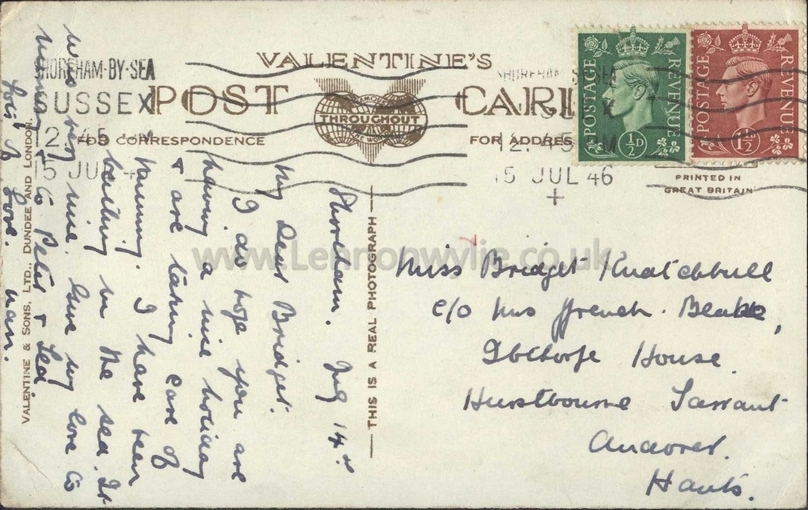 VALENTINE'S
POST CARD
THROUGHOUT
FOR CORRESPONDENCE
FOR ADDRESS
SHOREHAM-BY-SEA
SUSSEX
12.45 PM
15 JUL 46
SHOREHAM
12.45 PM
15 JUL 46
POSTAGE REVENUE
½D
POSTAGE REVENUE
1½
PRINTED IN
GREAT BRITAIN
Shoreham. July 14th
My Dear Bridget.
I do hope you are
having a nice holiday
& are taking care of
Nanny. I have been
bathing in the sea. It
was very nine. Give my love to
& to Peter & Lea
Lots of Love. Nan.
THIS IS A REAL PHOTOGRAPH
VALENTINE & SONS, LTD., DUNDEE AND LONDON.
Miss Bridget Knatchbull
c/o Mrs ffrench-Blake,
Ibthorpe House.
Hurstbourne Tarrant
Andover.
Hants.
www.Lennonwylie.co.uk